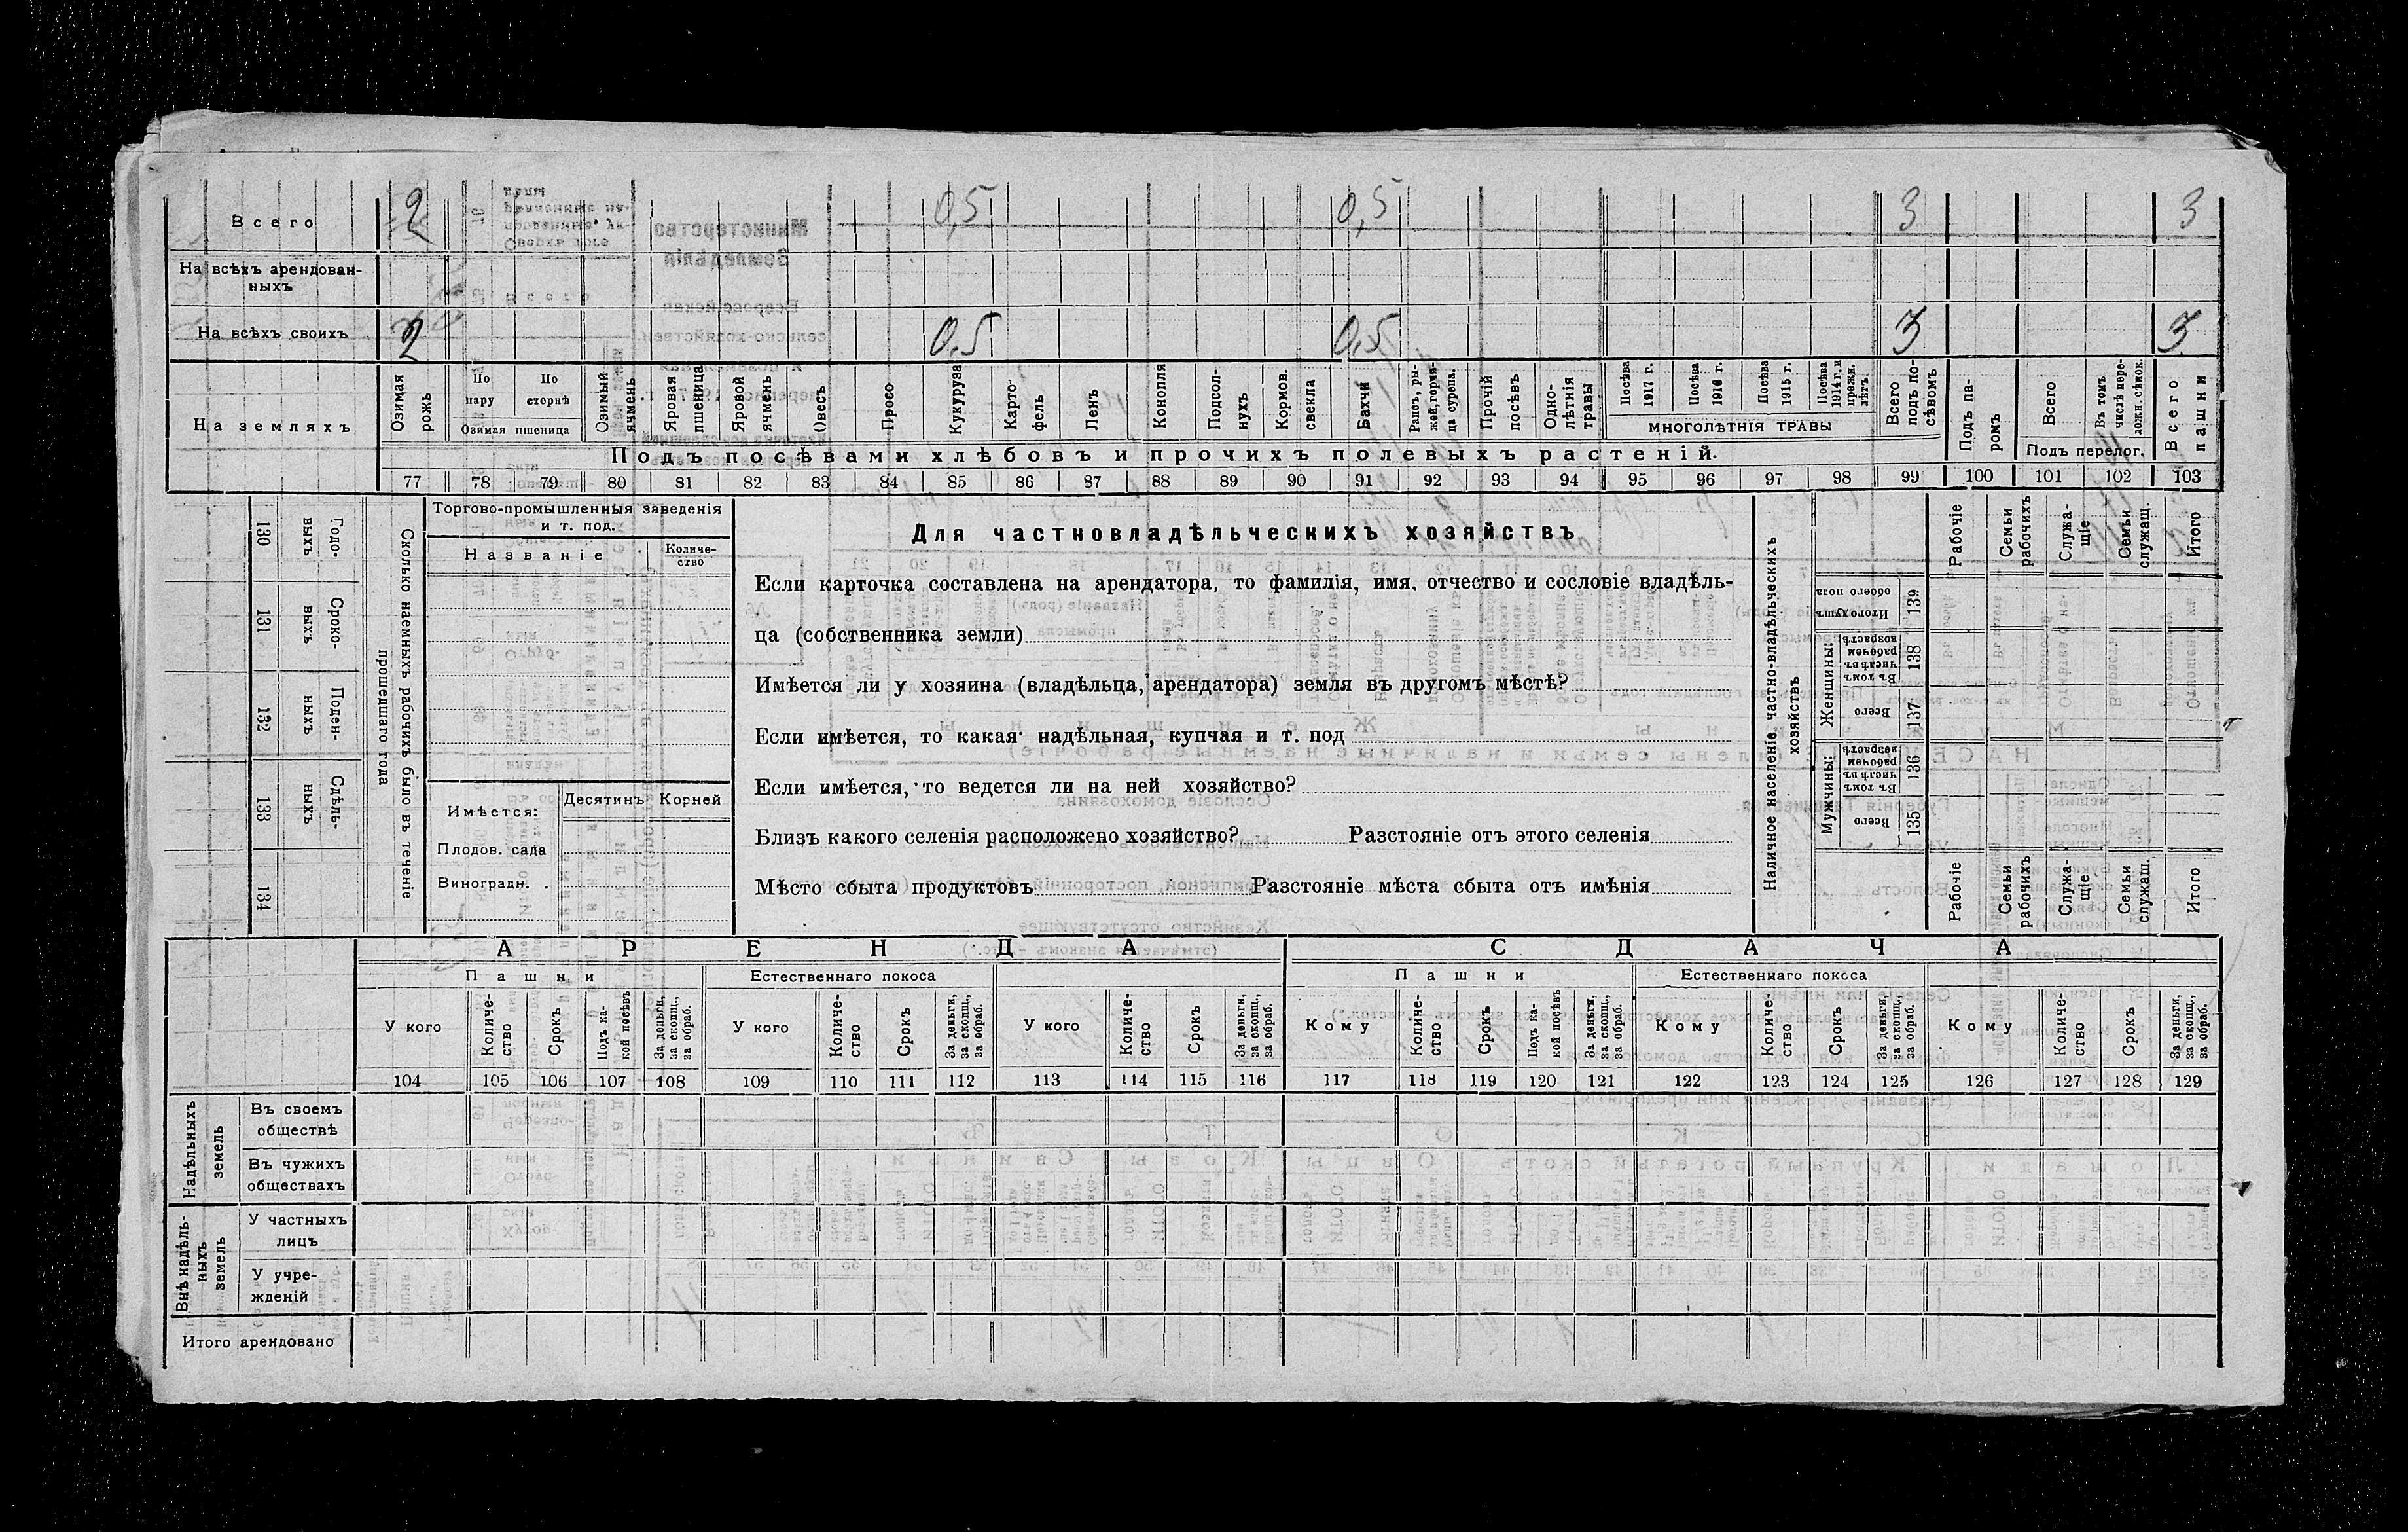 Всего 2 0,5 0,5 3 3
На всѣхъ арендован-
ныхъ
На всѣхъ своихъ 2 0.5 0,5 3 3
На земляхъ
Озимая рожь
По пару
По стернѣ
Озимая пшеница
Озимый ячмень
Яровая пшеница
Яровой ячмень
Овесъ
Просо
Кукуруза
Карто-
фель
Ленъ
Конопля
Подсол-
нухъ
Кормов.
свекла
Бахчи
Рапсъ, ры-
жей, горчи-
ца сурепа.
Прочій
посѣвъ
Одно-
лѣтнія
травы
Посѣва
1917 г.
Посѣва
1916 г.
Посѣва
1915 г.
Посѣва
1914 г. и
прежн.
лѣтъ.
МНОГОЛѢТНІЯ ТРАВЫ
Всего
подъ по-
сѣвомъ
Подъ па-
ромъ
Всего
Въ томъ
числѣ пере-
ложн. сѣнок.
Подъ перелог.
Всего
пашни
Подъ посѣвами хлѣбовъ и прочихъ полевыхъ растеній.
77 78 79 80 81 82 83 84 85 86 87 88 89 90 91 92 93 94 95 96 97 98 99 100 101 102 103
130 Годо-
выхъ
131 Сроко-
выхъ
132 Поден-
ныхъ
133 Сдѣль-
ныхъ
134
Сколько наемныхъ рабочихъ было въ теченіе
прошедшаго года
Торгово-промышленныя заведенія
и т. под.
Названіе
Количе-
ство
Имѣется:
Десятинъ
Корней
Плодов. сада
Виноградн. .
Для частновладѣльческихъ хозяйствъ
Если карточка составлена на арендатора, то фамилія, имя. отчество и сословіе владѣль-
ца (собственника земли)
Имѣется ли у хозяина (владѣльца, арендатора) земля въ другомъ мѣстѣ?
Если имѣется, то какая надѣльная, купчая и т. под
Если имѣется, то ведется ли на ней хозяйство?
Близъ какого селенія расположено хозяйство? Разстояніе отъ этого селенія
Мѣсто сбыта продуктовъ Разстояніе мѣста сбыта отъ имѣнія
Наличное населеніе частно-владѣльческихъ
хозяйствъ
Рабочіе
Семьи
рабочихъ
Служа-
щіе
Семьи
служащ.
Итого
Итого душъ
обоего пола
139
Женщины:
Въ томъ
числѣ въ
рабочемъ
возрастѣ
138
Всего
137
Мужчины:
Въ томъ
числѣ въ
рабочемъ
возрастѣ
136
Всего
135
Рабочіе
Семьи
рабочихъ
Служа-
щіе
Семьи
служащ.
Итого
АРЕНДА
СДАЧА
Пашни
Естественнаго покоса
Пашни
Естественнаго покоса
У кого
Количе-
ство
Срокъ
Подъ ка-
кой посѣвъ
За деньги,
за скопщ.,
за обраб.
У кого
Количе-
ство
Срокъ
За деньги,
за скопщ.,
за обраб.
У кого
Количе-
ство
Срокъ
За деньги,
за скопщ.,
за обраб.
Кому
Количе-
ство
Срокъ
Подъ ка-
кой посѣвъ
За деньги,
за скопщ.,
за обраб.
Кому
Количе-
ство
Срокъ
За деньги,
за скопщ.,
за обраб.
Кому
Количе-
ство
Срокъ
За деньги,
за скопщ.,
за обраб.
104 105 106 107 108 109 110 111 112 113 114 115 116 117 118 119 120 121 122 123 124 125 126 127 128 129
Надѣльныхъ
земель
Въ своемъ
обществѣ
Въ чужихъ
обществахъ
Внѣ надѣль-
ныхъ
земель
У частныхъ
лицъ
У учре-
жденій
Итого арендовано